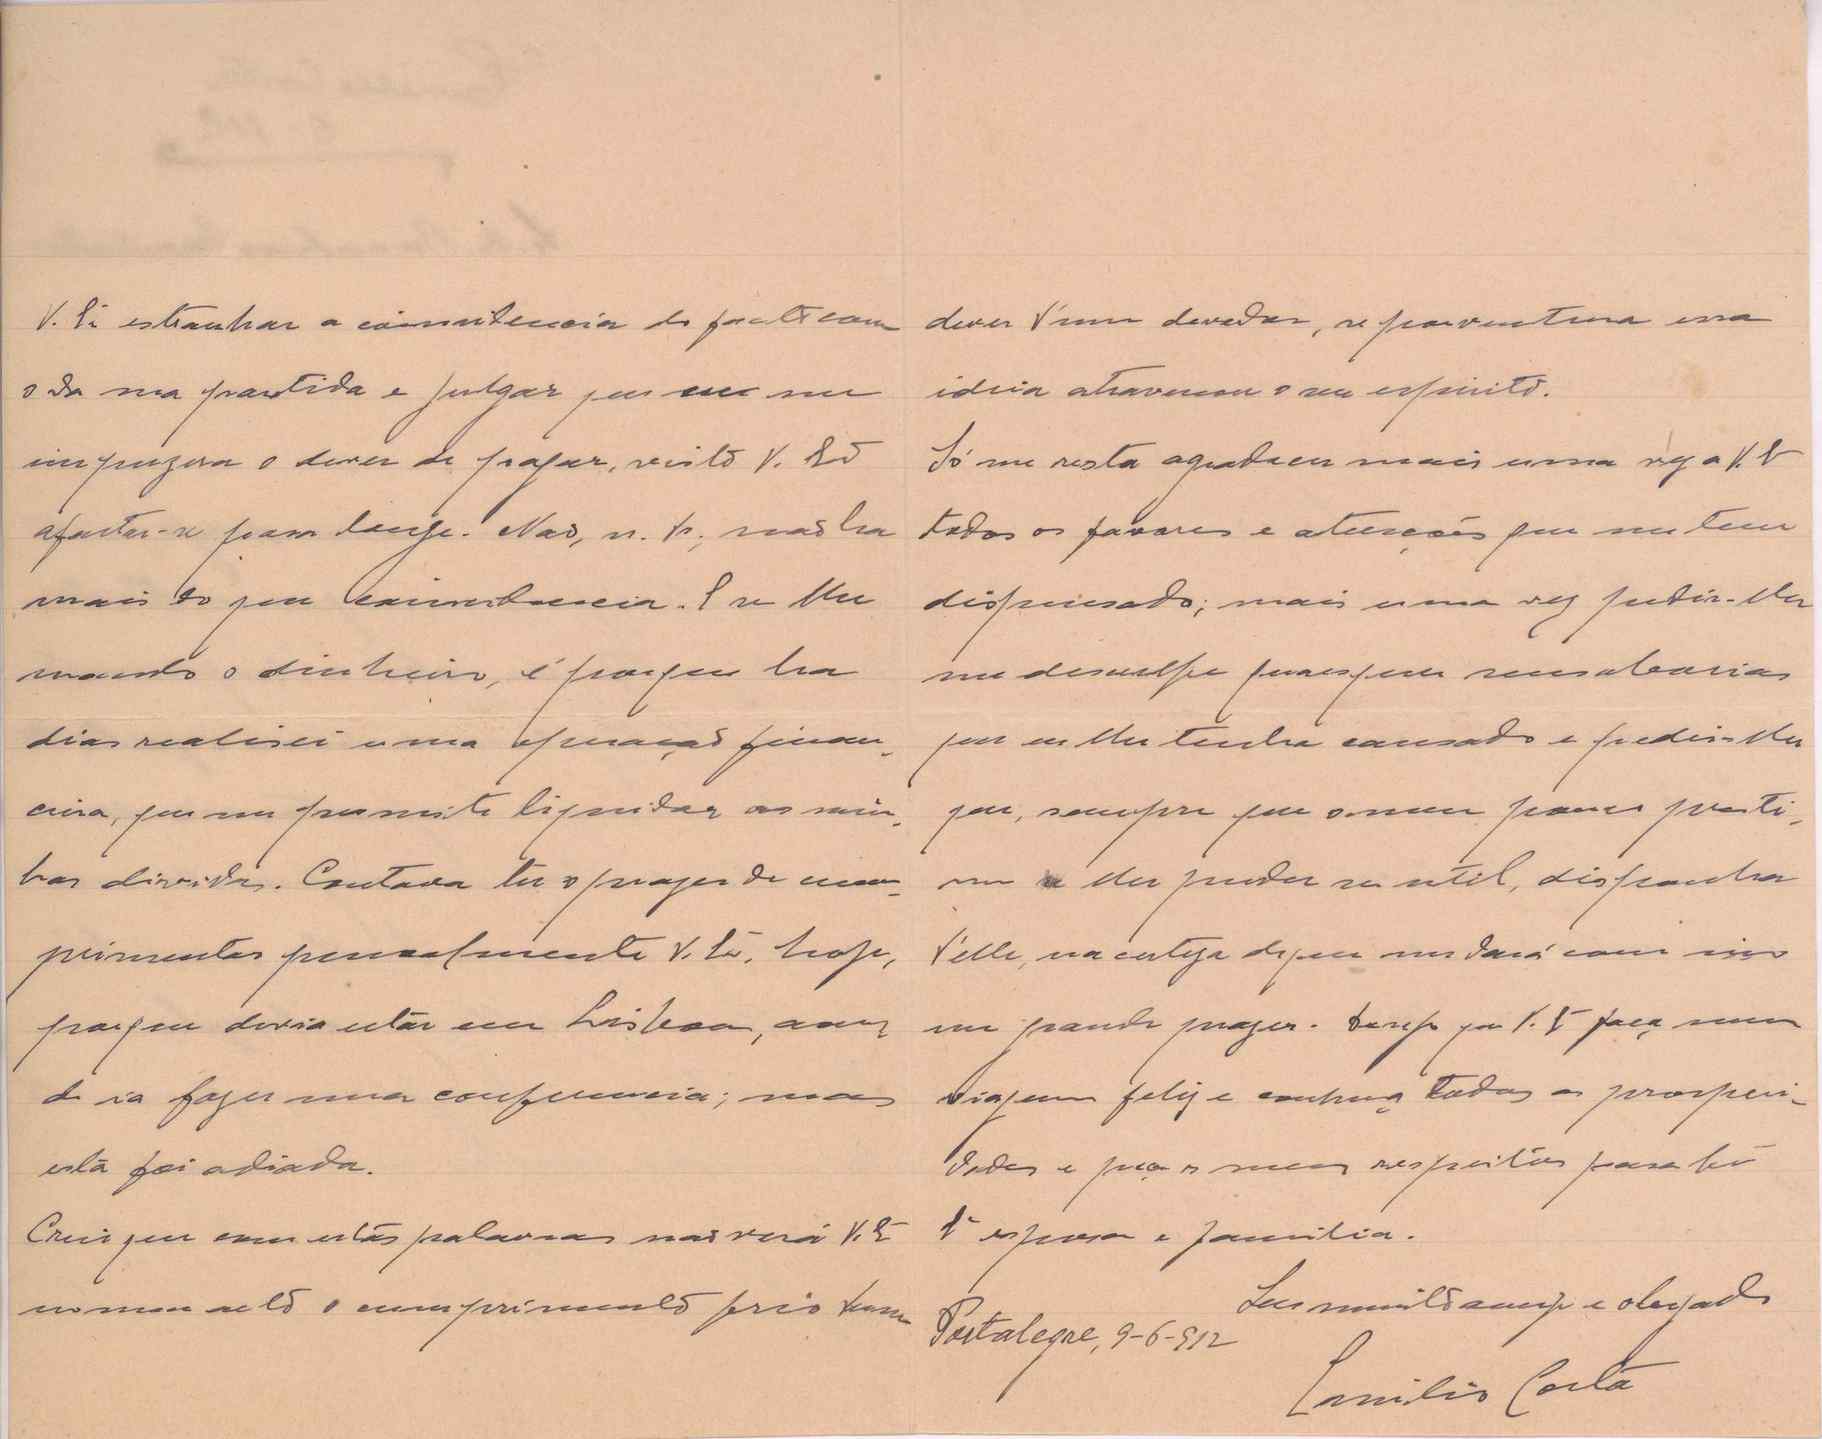 V. Exª estranhar a coincidencia do facto com
o da sua partida e julgar que eu me
impuzera o dever de pagar, visto V. Exª
afastar-se para longe. Não, não ha
mais do que coincidencia. E se lhe
mando o dinheiro, é porque ha
dias realisei uma operação finan-
ceira, que me permite liquidar as mi-
nhas dividas. Contava ter o prazer de cum-
primentar pessoalmente V. Exª, hoje,
porque devia estar em Lisboa, aon-
de ia fazer uma conferencia; mas
esta foi adiada.
Creio que com estas palavras não verá V. Exª
no meu acto o cumprimento frio d'um
dever d'um devedor, se porventura essa
ideia atravessou o seu espirito.
Só me resta agradecer mais uma vez a V. Exª
todos os favores e atenções que me tem
dispensado; mais uma vez pedir-lhe
me desculpe quaesquer sensaborias
que eu lhe tenha causado e pedir-lhe
que, sempre que o meu pouco presti-
mo lhe puder ser util, disponha
d'elle, na certeza de que me dará com isso
um grande prazer. Desejo que V. Exª faça uma
viagem feliz e tenha todas as prosperi-
dades e peço os meus respeitos para
Exª esposa e familia.
Seu muito amigo e obrigado
Portalegre, 9-6-912
Emilio Costa